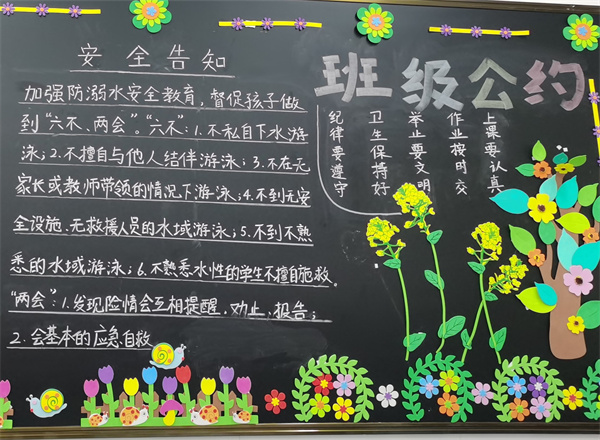 安全告知
加强防溺水安全教育，督促孩子做
到“六不、两会”。“六不”：1.不私自下水游
泳；2.不擅自与他人结伴游泳；3.不在无
家长或教师带领的情况下游泳；4.不到无安
全设施、无救援人员的水域游泳；5.不到不熟
悉的水域游泳；6.不熟悉水性的学生不擅自施救。
“两会”：1.发现险情会互相提醒、劝止、报告；
2.会基本的应急自救
班级公约
上课要认真
作业按时交
举止要文明
卫生保持好
纪律要遵守